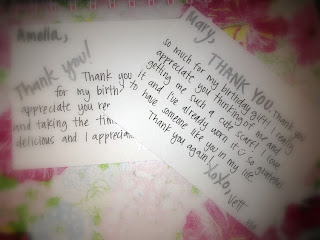 Amelia,
Thank you!
Thank you
for my birth
appreciate you
and taking the
delicious and I
Mary,
THANK YOU Thank you
so much for my birthday gift! I really
appreciate you thinking of me and
getting me such a cute scarf! I love
it and I've already worn it so grateful
to have someone like you in my life.
Thank you again!
XOXO,